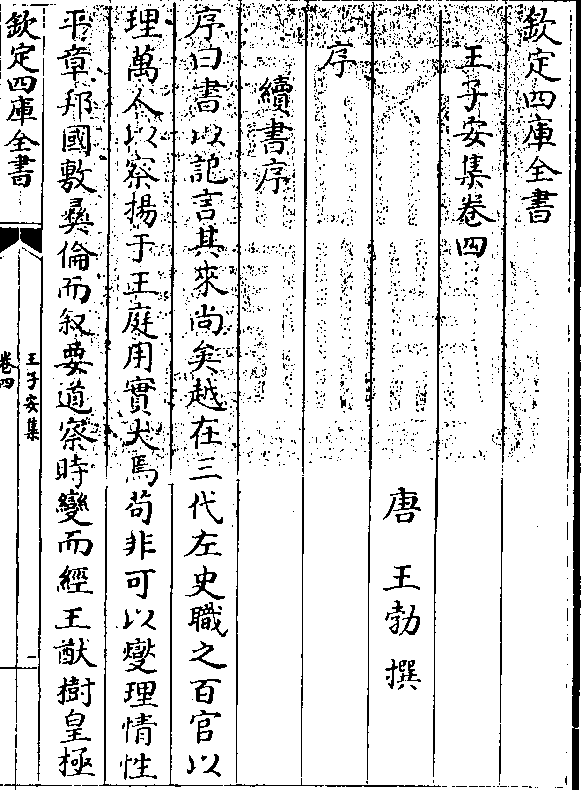 欽定四庫全書
王子安集卷四
唐 王勃 撰
序
續書序
序曰書以記言其來尚矣越在三代左史職之百官以
理萬人以察揚于王庭用實大焉苟非可以燮理情性
平章邦國敷彛倫而叙要道察時變而經王猷樹皇極
欽定四庫全書
王子安集
卷四
一